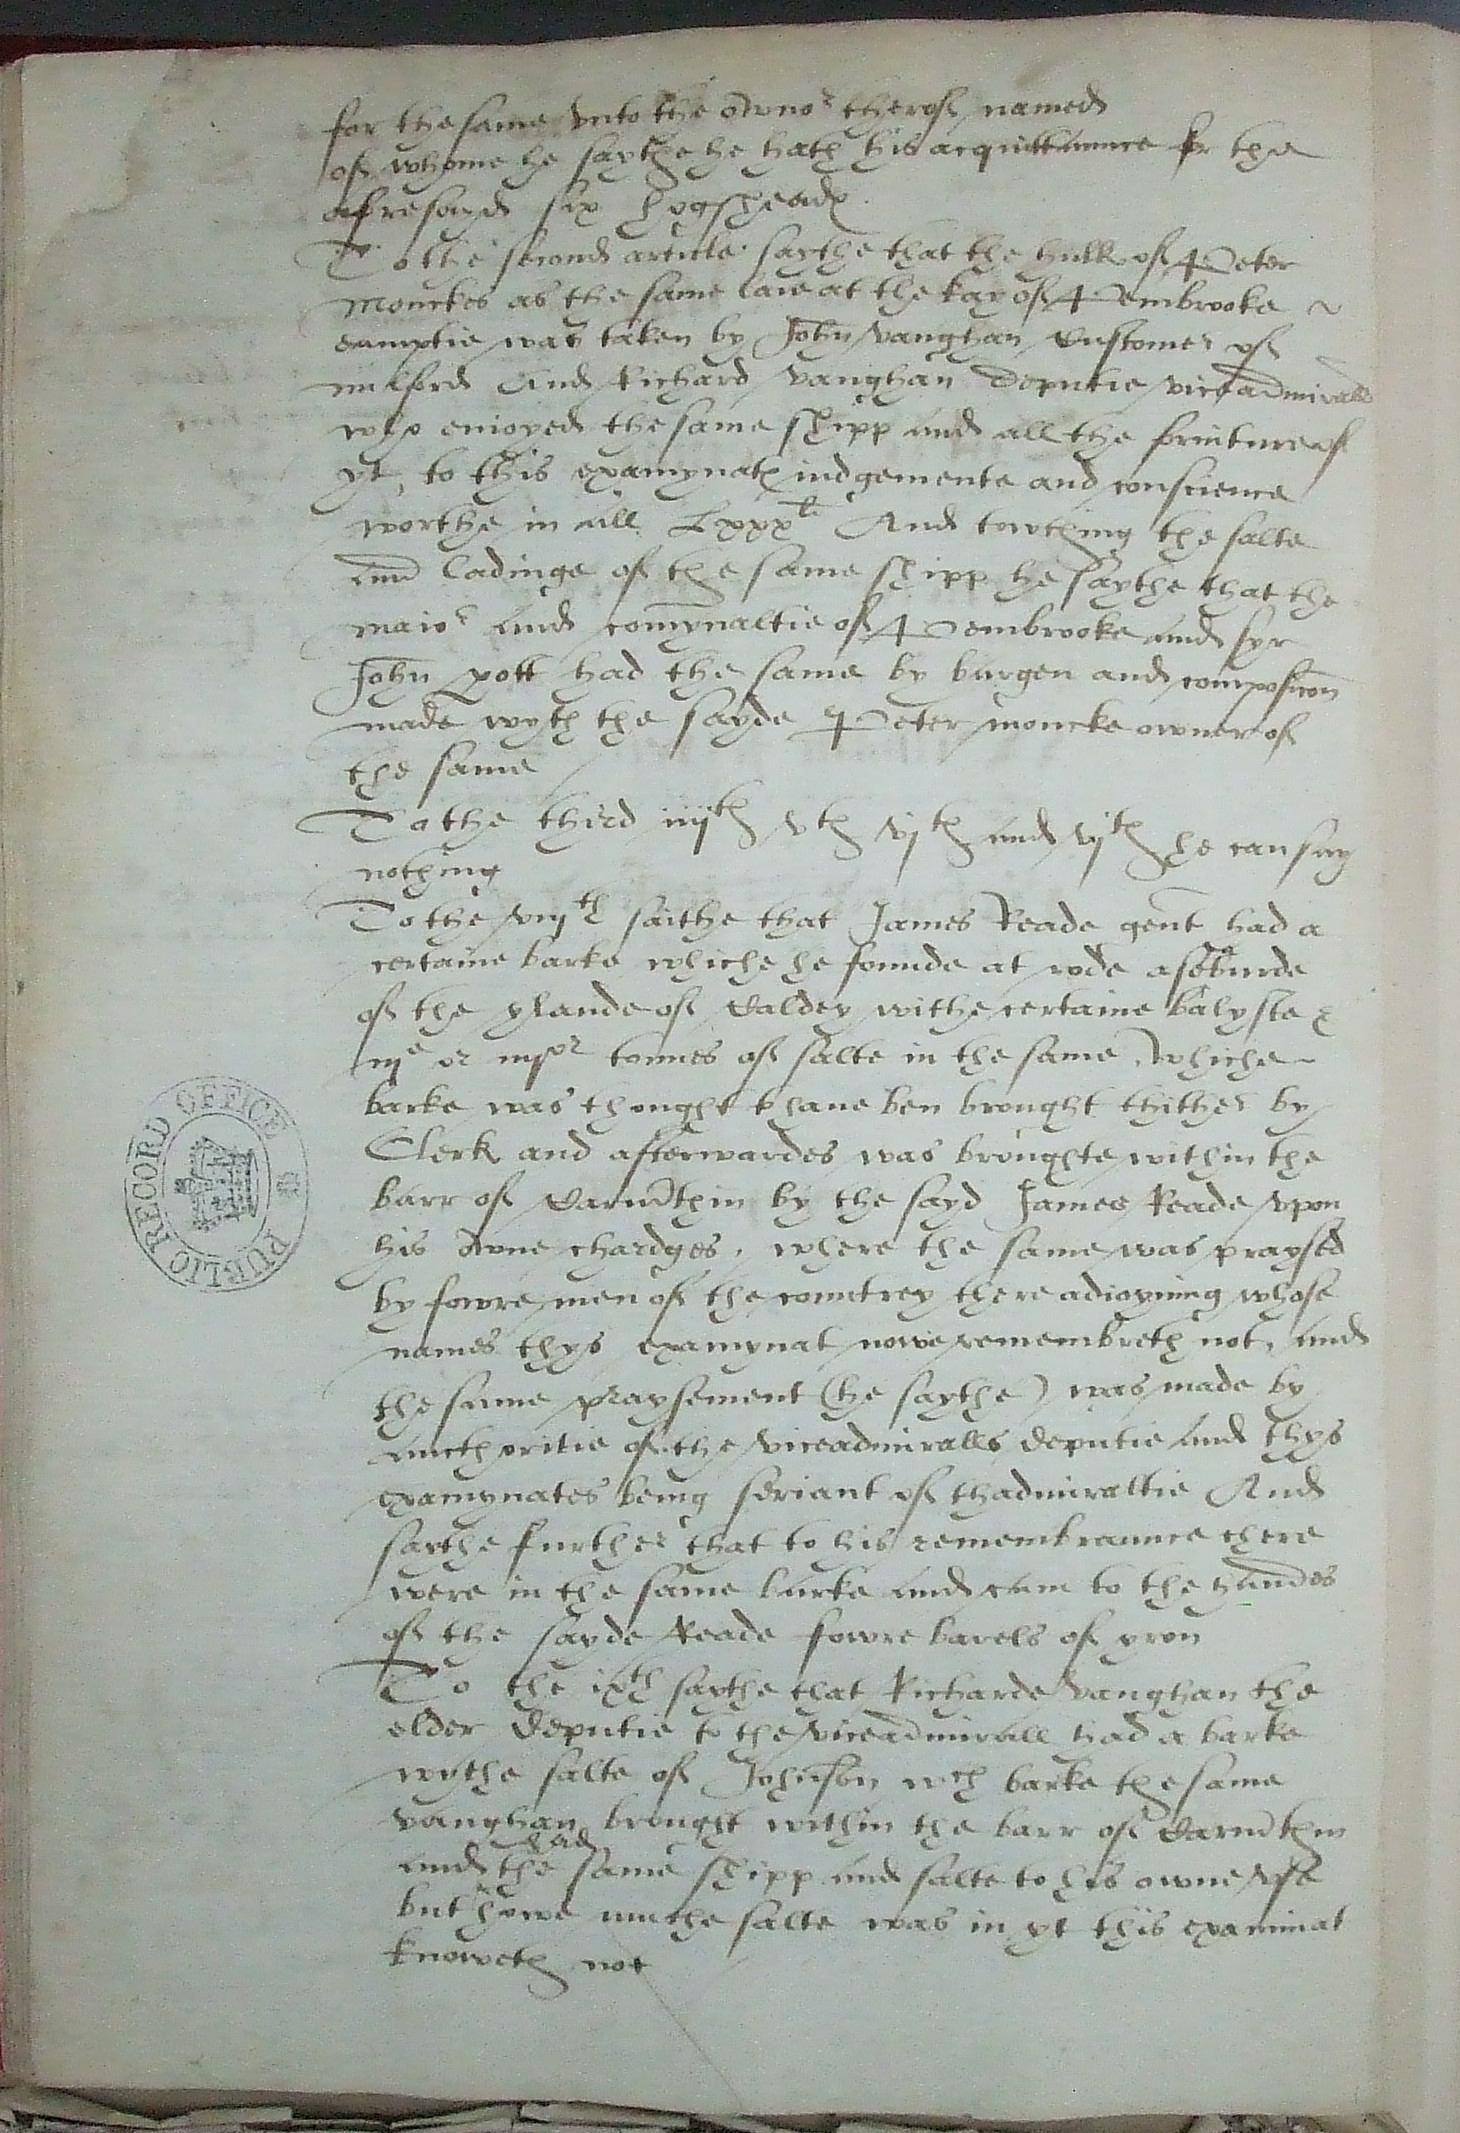 for the same vnto the owno^r therof named
of whome he saythe he hath his acquittaunce for the
aforesayd six hogsheades
To the second article saythe that the hulk of Peter
Monckes as the same laie at the kay of Pembrooke
eamptie was taken by John vaughan Customer of
milford And Richard vaughan deputie viceadmirall
who enioyed the same shipp and all the forniture of
yt, to this examynates iudgemente and conscience
worthe in all Lxxx^li And towching the salte
and ladinge of the same shipp he saythe that the
maio^r and comynaltie of Pembrooke and syr
John pott had the same by bargen and composicon
made wyth the sayde Peter moncke owner of
the same
To the third iiij^th v^th vj^th and vij^th he can say
nothing
To the viij^th saithe that James Reade gent had a
certaine barke whiche he founde at rode aseburde
of the ylande of Caldey withe certaine balyste &
iij^e or iiij^or tonnes of salte in the same, whiche
barke was thought thaue ben brought thither by
Clerk and afterwardes was broughte within the
barr of Carmthin by the sayd James Reade vpon
his owne chardges, where the same was praysed
by fowre men of the countrey there adioyning whose
names thys examynat nowe remembreth not, and
the same praysement (he saythe) was made by
aucthoritie of the viceadmiralls deputie and thys
examynates being seriant of thadmiraltie And
saythe further that to his remembraunce there
were in the same barke and cam to the handes
of the sayde Reade fowre barels of yron
To the ix^th saythe that Richarde Vaughan the
elder deputie to the viceadmirall had a barke
wythe salte of Johnson w^ch barke the same
vaughan brought within the barr of Carmthin
and had the same shipp and salte to his owne vse
but howe muche salte was in yt this examinat
knoweth not
PUBLIC RECORD OFFICE